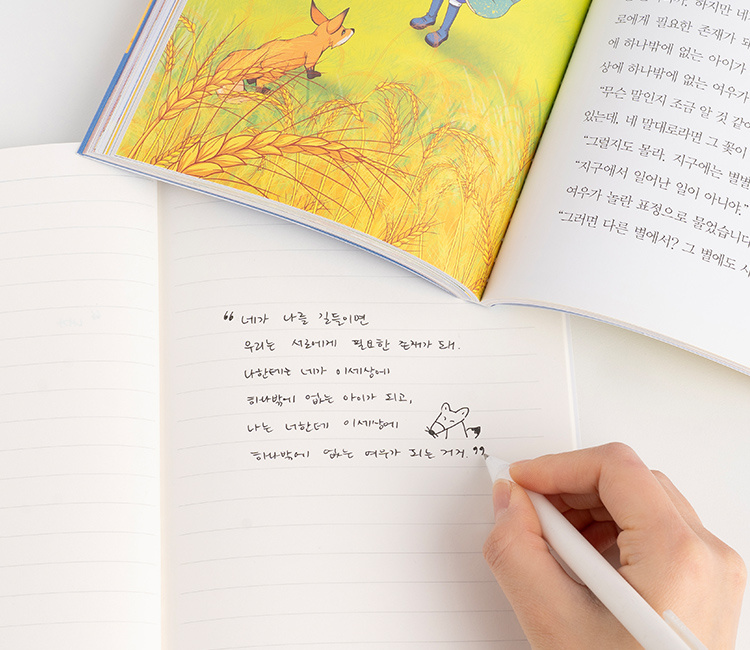 지만 네
로에게 필요한 존재가 되
에 하나밖에 없는 아이가
상에 하나밖에 없는 여우가
“무슨 말인지 조금 알 것 같아
있는데, 네 말대로라면 그 꽃이
“그럴지도 몰라. 지구에는 별별
“지구에서 일어난 일이 아니야.”
여우가 놀란 표정으로 물었습니다
“그러면 다른 별에서? 그 별에도 사
“네가 나를 길들이면
우리는 서로에게 필요한 존재가 돼.
나한테는 네가 이세상에
하나밖에 없는 아이가 되고,
나는 너한테 이세상에
하나밖에 없는 여우가 되는 거지.”